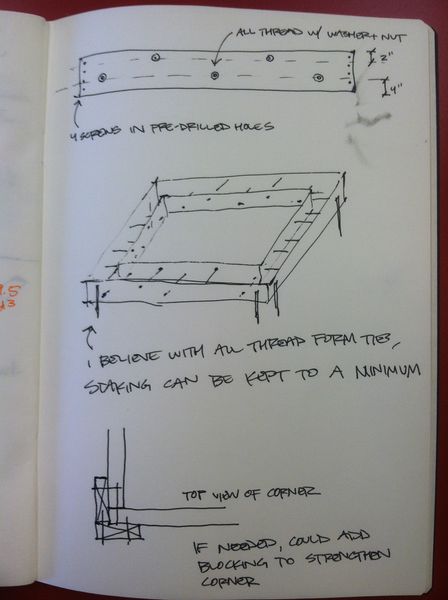 ALL THREAD W/ WASHER + NUT
2"
4"
4 SCREWS IN PRE-DRILLED HOLES
.5
I BELIEVE WITH ALL THREAD FORM TIES,
STAKING CAN BE KEPT TO A MINIMUM
TOP VIEW OF CORNER
IF NEEDED, COULD ADD
BLOCKING TO STRENGTHEN
CORNER